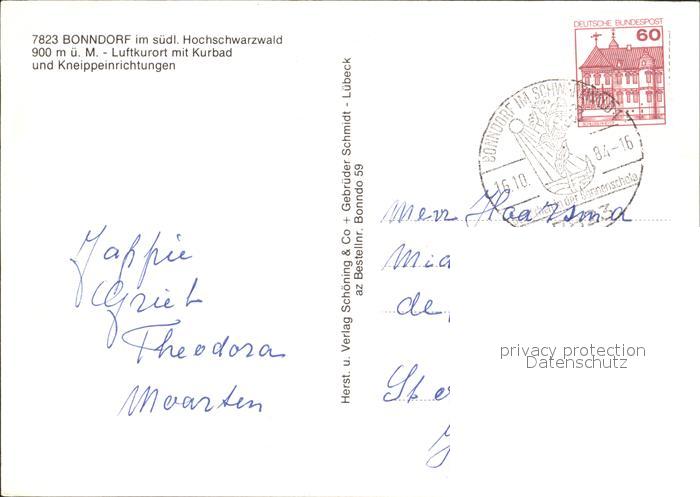 7823 BONNDORF im südl. Hochschwarzwald
900 m ü. M. - Luftkurort mit Kurbad
und Kneippeinrichtungen
DEUTSCHE BUNDESPOST
60
BONNDORF IM SCHWARZWALD
16.10. 84-16
Herst. u. Verlag Schöning & Co + Gebrüder Schmidt - Lübeck
az Bestellnr. Bonndo 59
Jappie
Griet
Theodora
Maarten
Haarsma
de
privacy protection
Datenschutz